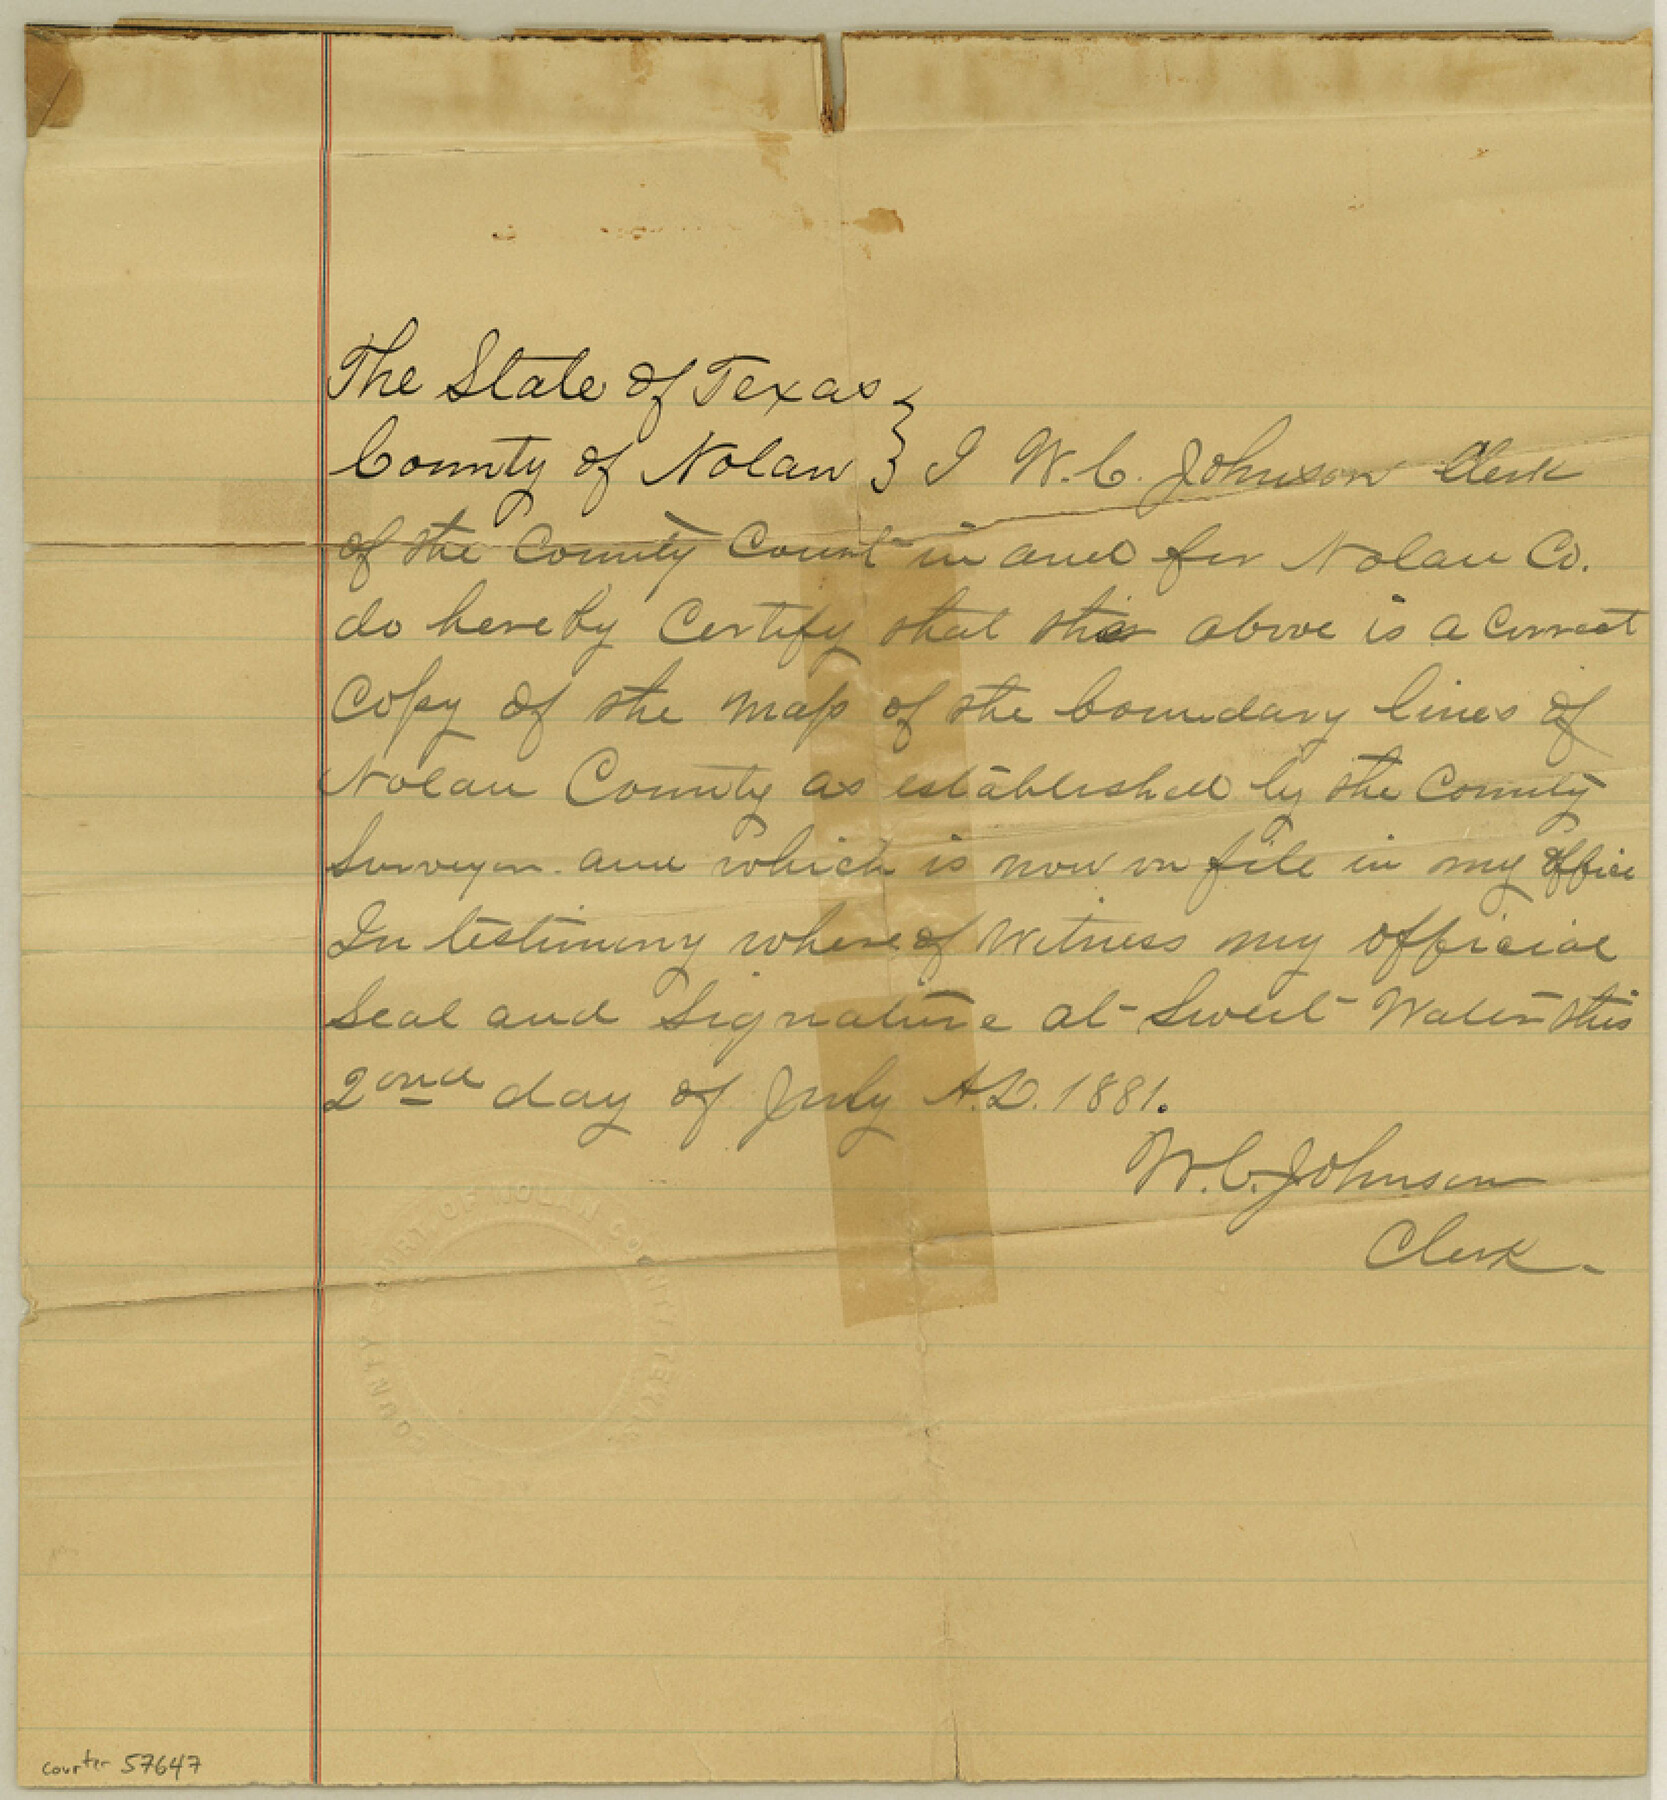 The State of Texas
County of Nolan } I W.C. Johnson Clerk
of the County Court in and for Nolan Co.
do hereby Certify that the above is a correct
Copy of the map of the boundary lines of
Nolan County as established by the County
Surveyor and which is now on file in my office
In testimony whereof Witness my official
Seal and Signature at Sweet Water this
2ond day of July A.D. 1881.
W.C. Johnson
Clerk.
COUNTY COURT OF NOLAN COUNTY TEXAS
counter 57647